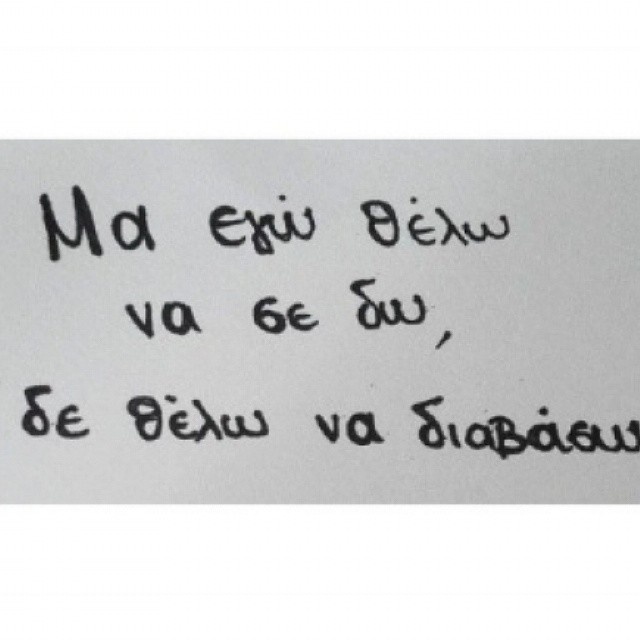 Μα εγώ θέλω
να σε δω,
δε θέλω να διαβάσω